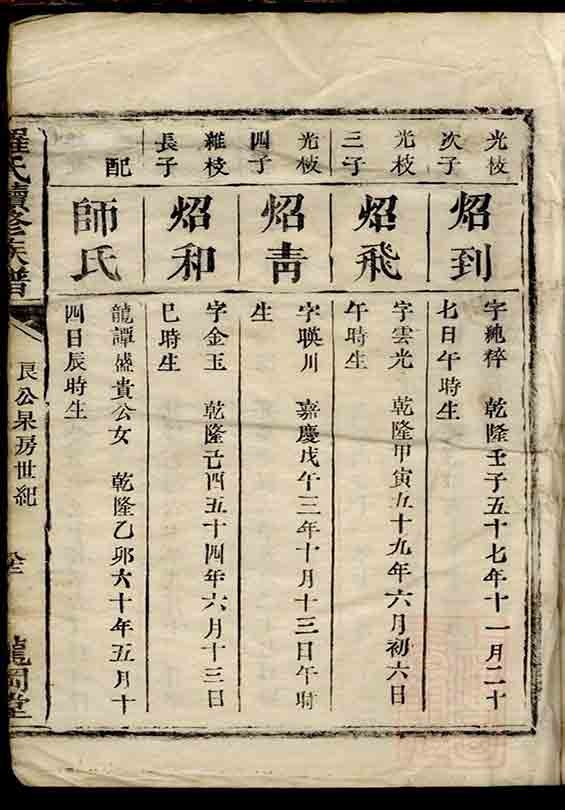 光枝
次子
炤到
字純粹 乾隆壬子五十七年十一月二十
七日午時生
光枝
三子
炤飛
字雲光 乾隆甲寅五十九年六月初六日
午時生
光枝
四子
炤青
字暎川 嘉慶戊午三年十月十三日午時
生
維枝
長子
炤和
字金玉 乾隆己酉五十四年六月十三日
巳時生
配
師氏
龍譚盛貴公女 乾隆乙卯六十年五月十
四日辰時生
羅氏續修族譜
良公杲房世紀
龍岡堂